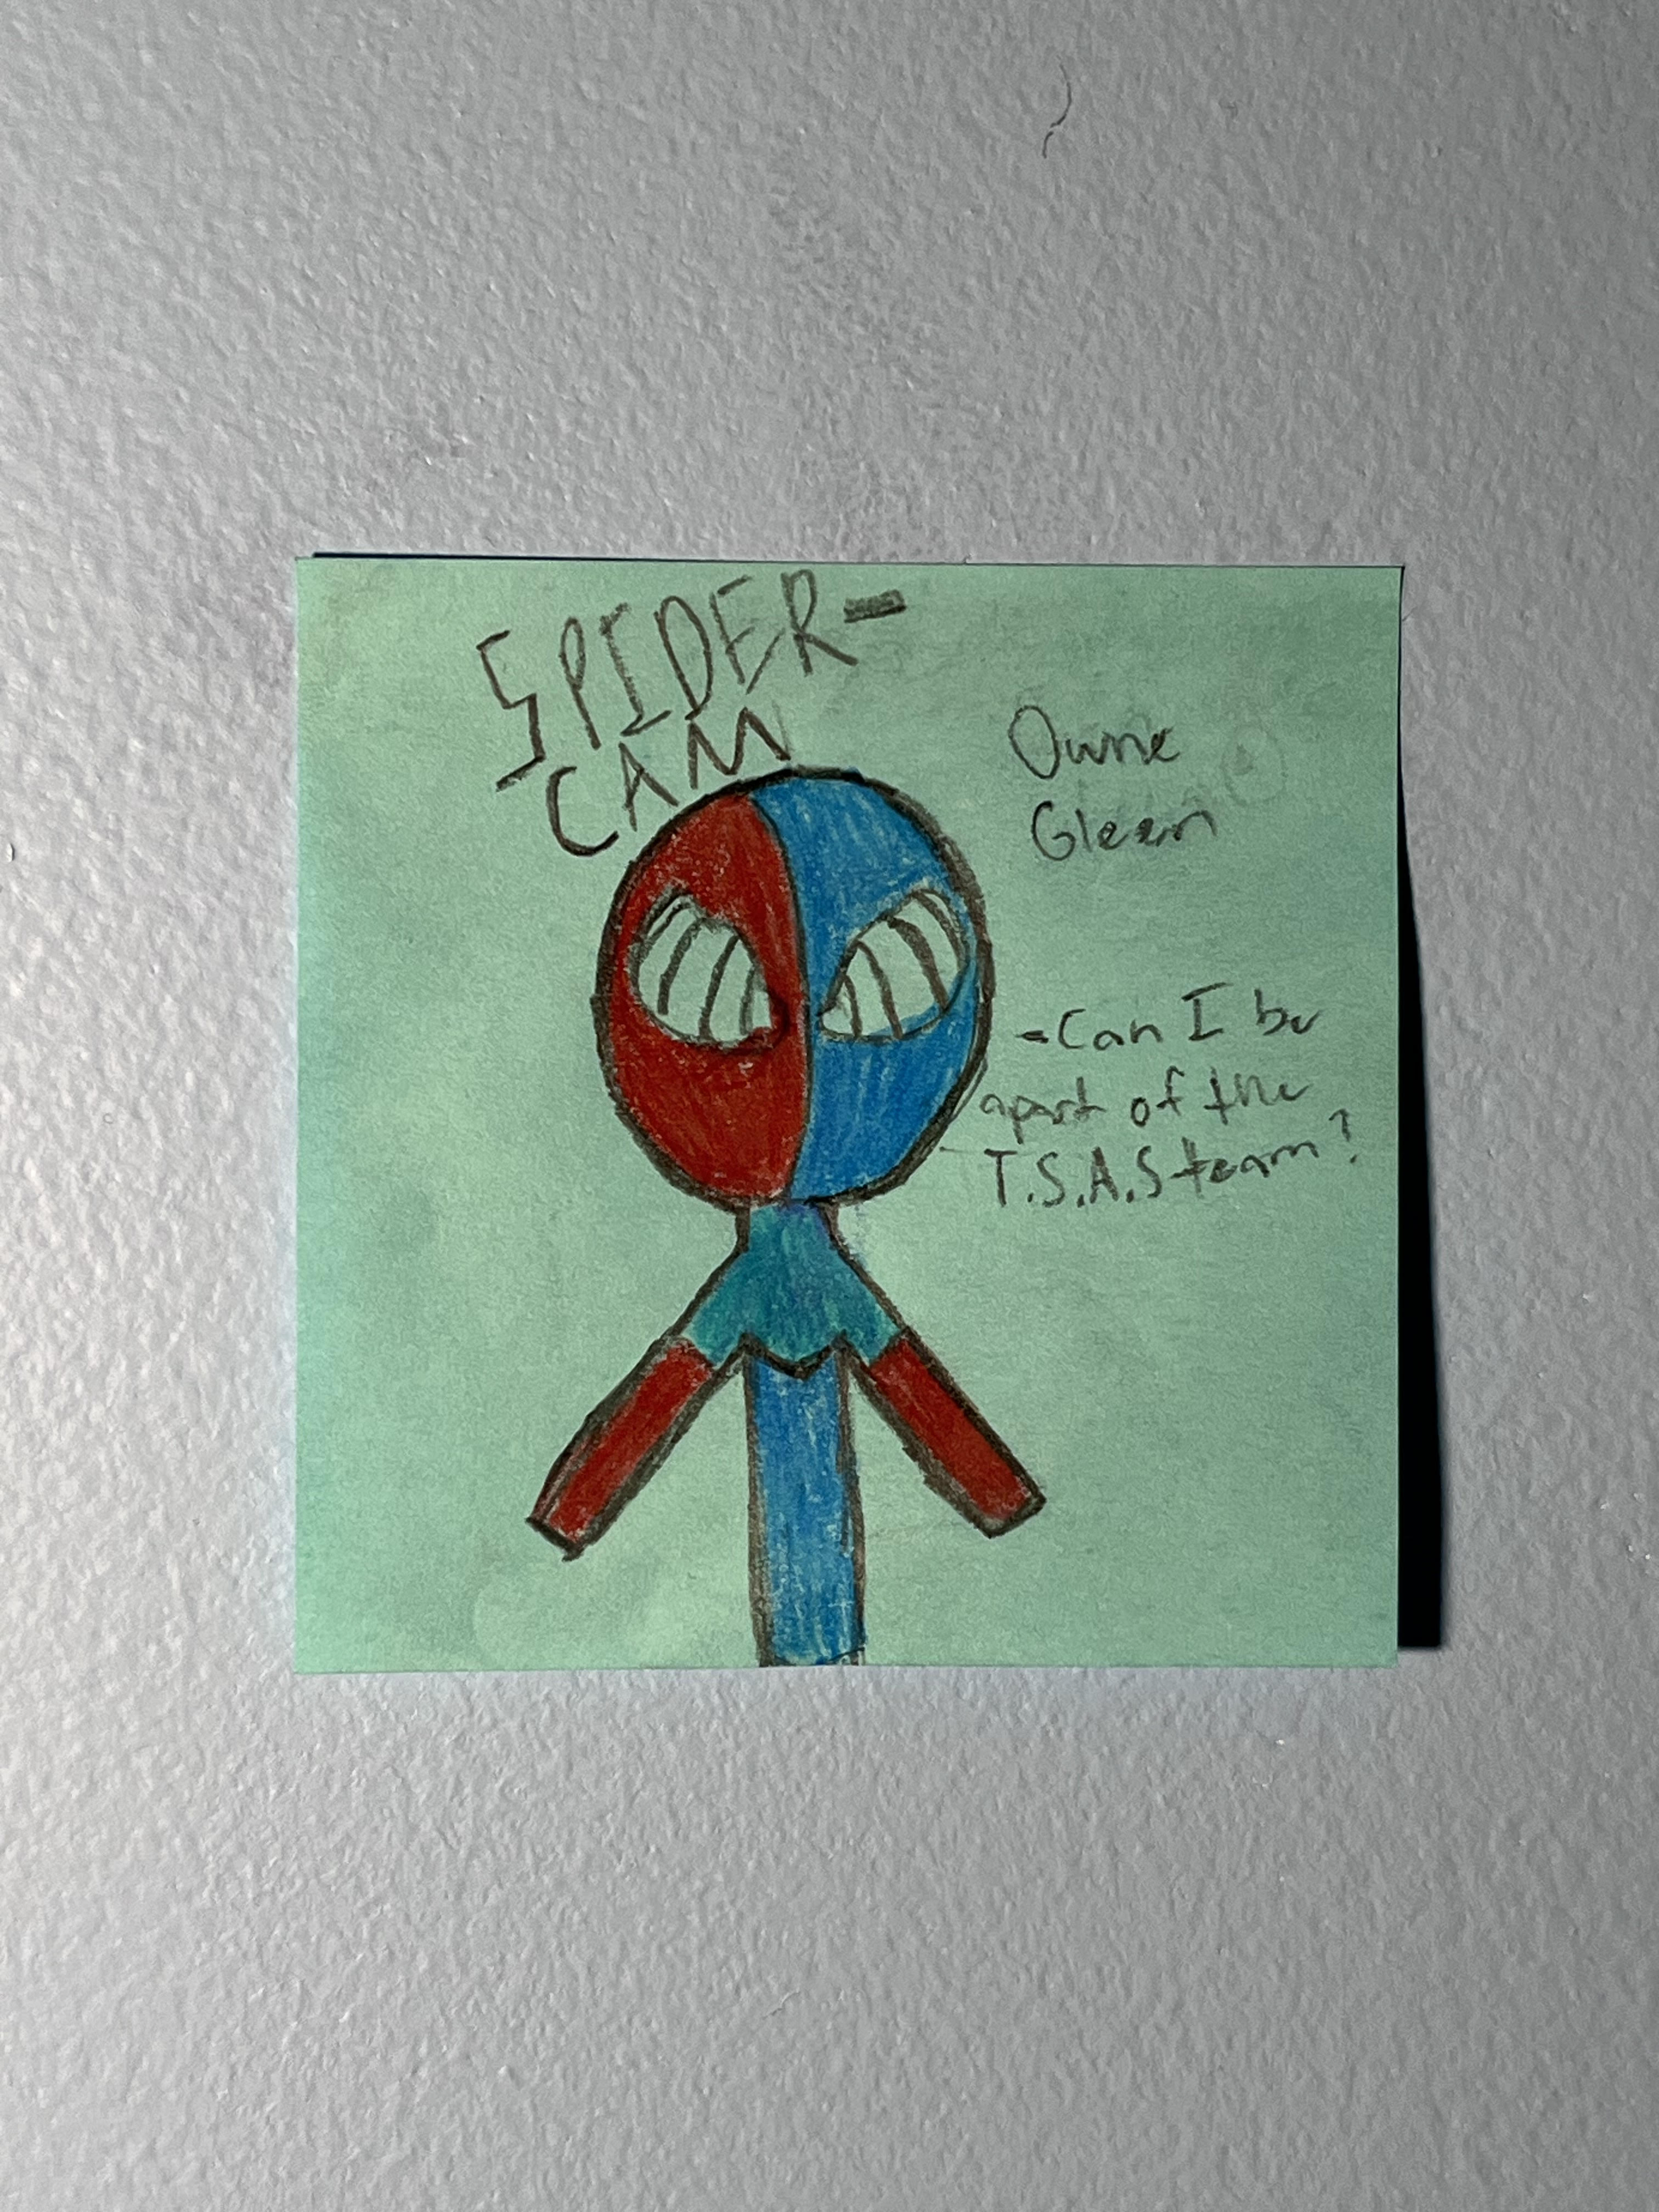 SPIDER-
CAM
Owne
Gleen
-Can I be
apart of the
T.S.A.S team?